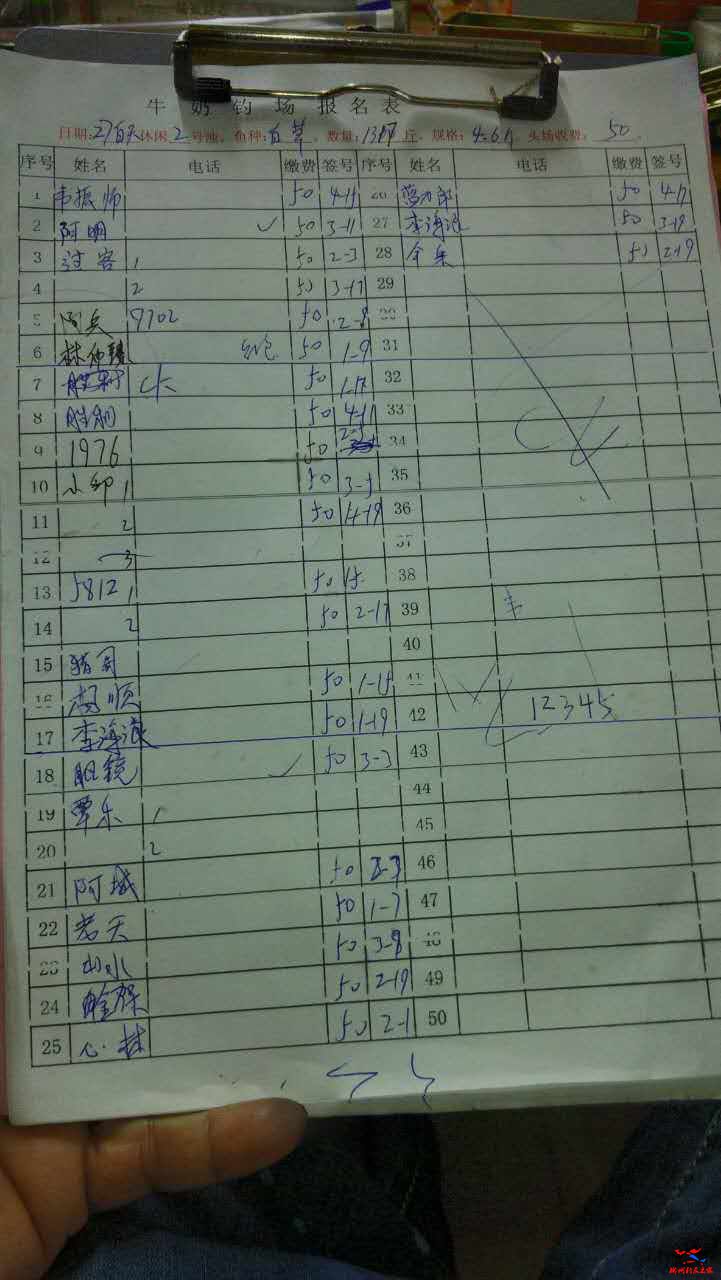 牛奶钓场报名表
日期:27白天休闲2号池、鱼种:白草、数量: 斤、规格:4-6斤、头场收费:50
序号 姓名 电话 缴费 签号 序号 姓名 电话 缴费 签号
1 韦振师 50 4-11 50 4-17
2 阿明 ✓ 50 3-11 27 李涛浪 50 3-19
3 过客 1 50 2-3 28 50 2-19
4 2 50 3-17 29
5 阿兵 9702 50 2-8 30
6 50 1-9 31
7 50 1-17 32
8 胜利 50 4-11 33
9 1976 50 34
10 小邹 1 50 3-5 35
11 2 50 4-19 36
12 3 37
13 5812 1 50 15 38
14 2 50 2-17 39
15 40
16 50 1-15 41
17 李涛浪 50 1-19 42 12345
18 眼镜 ✓ 50 3-3 43
19 覃乐 1 44
20 2 45
21 阿城 50 46
22 老天 50 1-7 47
23 山水 50 3-8 48
24 50 2-19 49
25 心.林 50 2-1 50